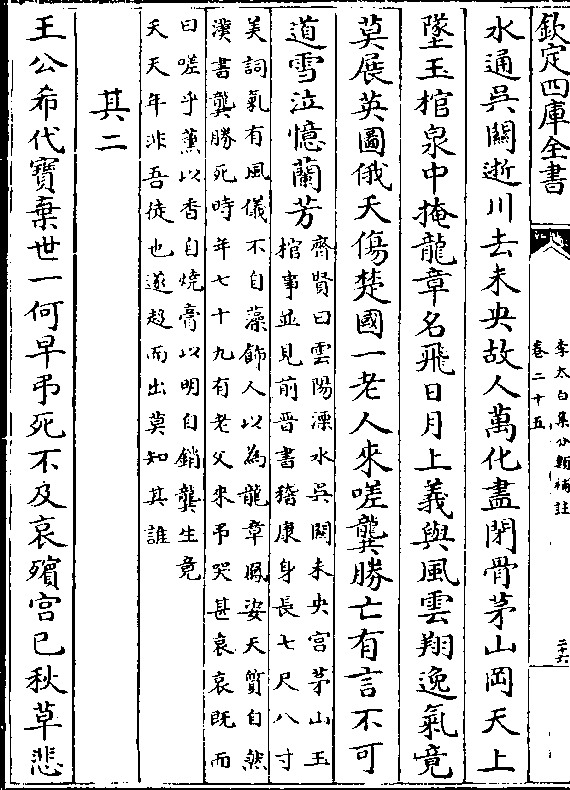 欽定四庫全書
李太白集分類補註
卷二十五
二十六
水通吳關逝川去未央故人萬化盡閉骨茅山岡天上
墜玉棺泉中掩龍章名飛日月上義與風雲翔逸氣竟
莫展英圖俄夭傷楚國一老人來嗟龔勝亡有言不可
道雪泣憶蘭芳
齊賢曰雲陽溧水吳關未央宫茅山玉
棺事並見前晉書稽康身長七尺八寸
美詞氣有風儀不自藻飾人以為龍章鳳姿天質自然
漢書龔勝死時年七十九有老父來弔哭甚哀哀既而
曰嗟乎薰以香自燒膏以明自銷龔生竟
夭天年非吾徒也遂趍而出莫知其誰
其二
王公希代寶棄世一何早弔死不及哀殯宫已秋草悲